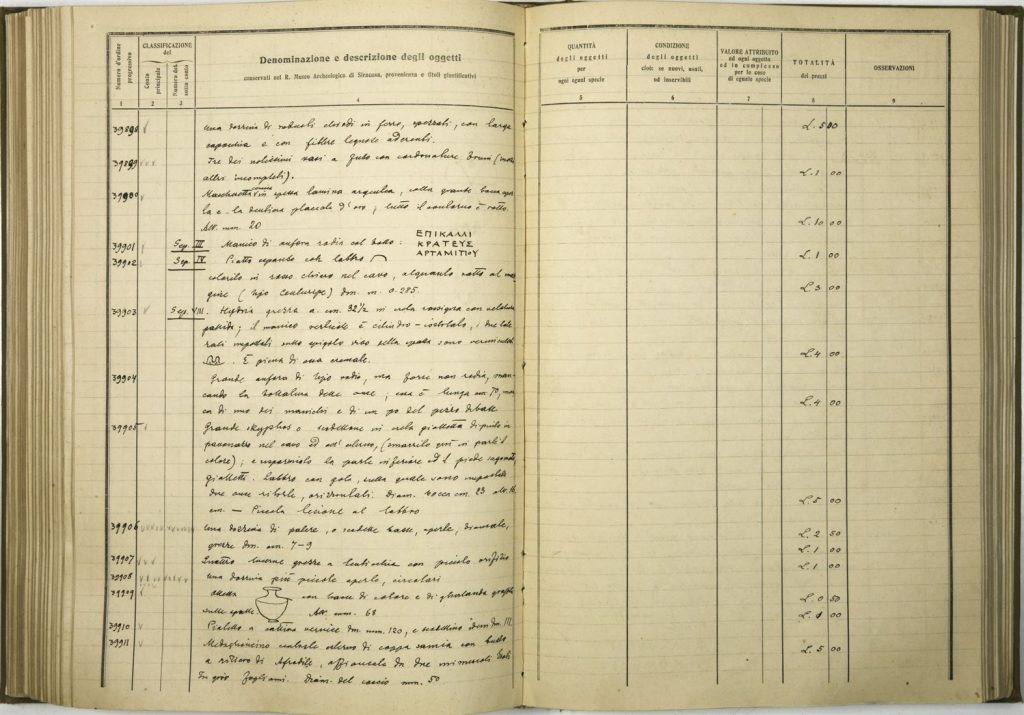 Numero d'ordine progressivo
CLASSIFICAZIONE del
Conto principale
Numero del sotto conto
Denominazione e descrizione degli oggetti
conservati nel R. Museo Archeologico di Siracusa, provenienza e titoli giustificativi
QUANTITÀ degli oggetti per ogni ogni specie
CONDIZIONE degli oggetti cioè: se nuovi, usati, od inservibili
VALORE ATTRIBUITO ad ogni oggetto ed in complesso per le cose di eguale specie
TOTALITÀ dei prezzi
OSSERVAZIONI
1 2 3 4 5 6 7 8 9
39898 Una dozzina di robusti chiodi in ferro, spezzati, con larga L. 5 00
capocchia e con fibre legnose aderenti.
39899 Tre dei notissimi vasi a fuso con cordonature (molti L. 1 00
altri incompleti).
39900 Maschietta comica in spessa lamina argentea, colla grande bocca aper
la e la dentiera placcate d'oro; tutto il contorno è rotto.
Alt. mm. 20 L. 10 00
39901 Sep. III Manico di anfora rodia col bollo: ΕΠΙΚΑΛΛΙ
ΚΡΑΤΕΥΣ
ΑΡΤΑΜΙΤΙΟΥ
39902 Sep. IV Piatto espanso con labbro L. 1 00
colorito in rosso chiaro nel cavo, alquanto rotto al mar
gine (tipo Centuripe) dm. m. 0.285. L. 3 00
39903 Sep. VIII. Hydria grezza a. cm. 32½ in creta rossigna con
; il manico verticale è cilindro - , i due late
rali impostati sullo spigolo vivo della spalla sono vermicolati
. È piena di ossa cremate. L. 4 00
39904 Grande anfora di tipo rodio, ma forse non rodia, man
cando la bollatura delle anse; essa è lunga cm. 70, man
ca di uno dei manichi e di un po' del pezzo di base L. 4 00
39905 Grande skyphos o scodellone in creta gialletta dipinto in
paonazzo nel cavo ed all'esterno, (smarrito però in parte il
colore); e risparmiato la parte inferiore ed il piede sagomato
gialletti. Labbro con gola, sulla quale sono impostate
due anse ritorte, orizzontali. Diam. bocca cm. 23 alt. 16
cm. — Piccola lesione al labbro L. 5 00
39906 Una dozzina di patere, o scodelle basse, aperte, ,
grezze dm. cm. 7-9 L. 2 50
L. 1 00
39907 Quattro lucerne grezze a lenticchia con piccolo orifizio L. 1 00
39908 Una dozzina più piccole aperte, circolari
39909 Olletta con tracce di colore e di ghirlanda graffita L. 0 50
sulle spalle Alt. mm. 68 L. 1 00
39910 Piattello a cattiva vernice dm. mm. 120, e scodellino idem dm. 111.
39911 Medaglioncino centrale interno di coppa samia con busto L. 5 00
a rilievo di Afrodite, affiancata da due minuscoli Eroti
In giro fogliami. Diam. del coccio mm. 50